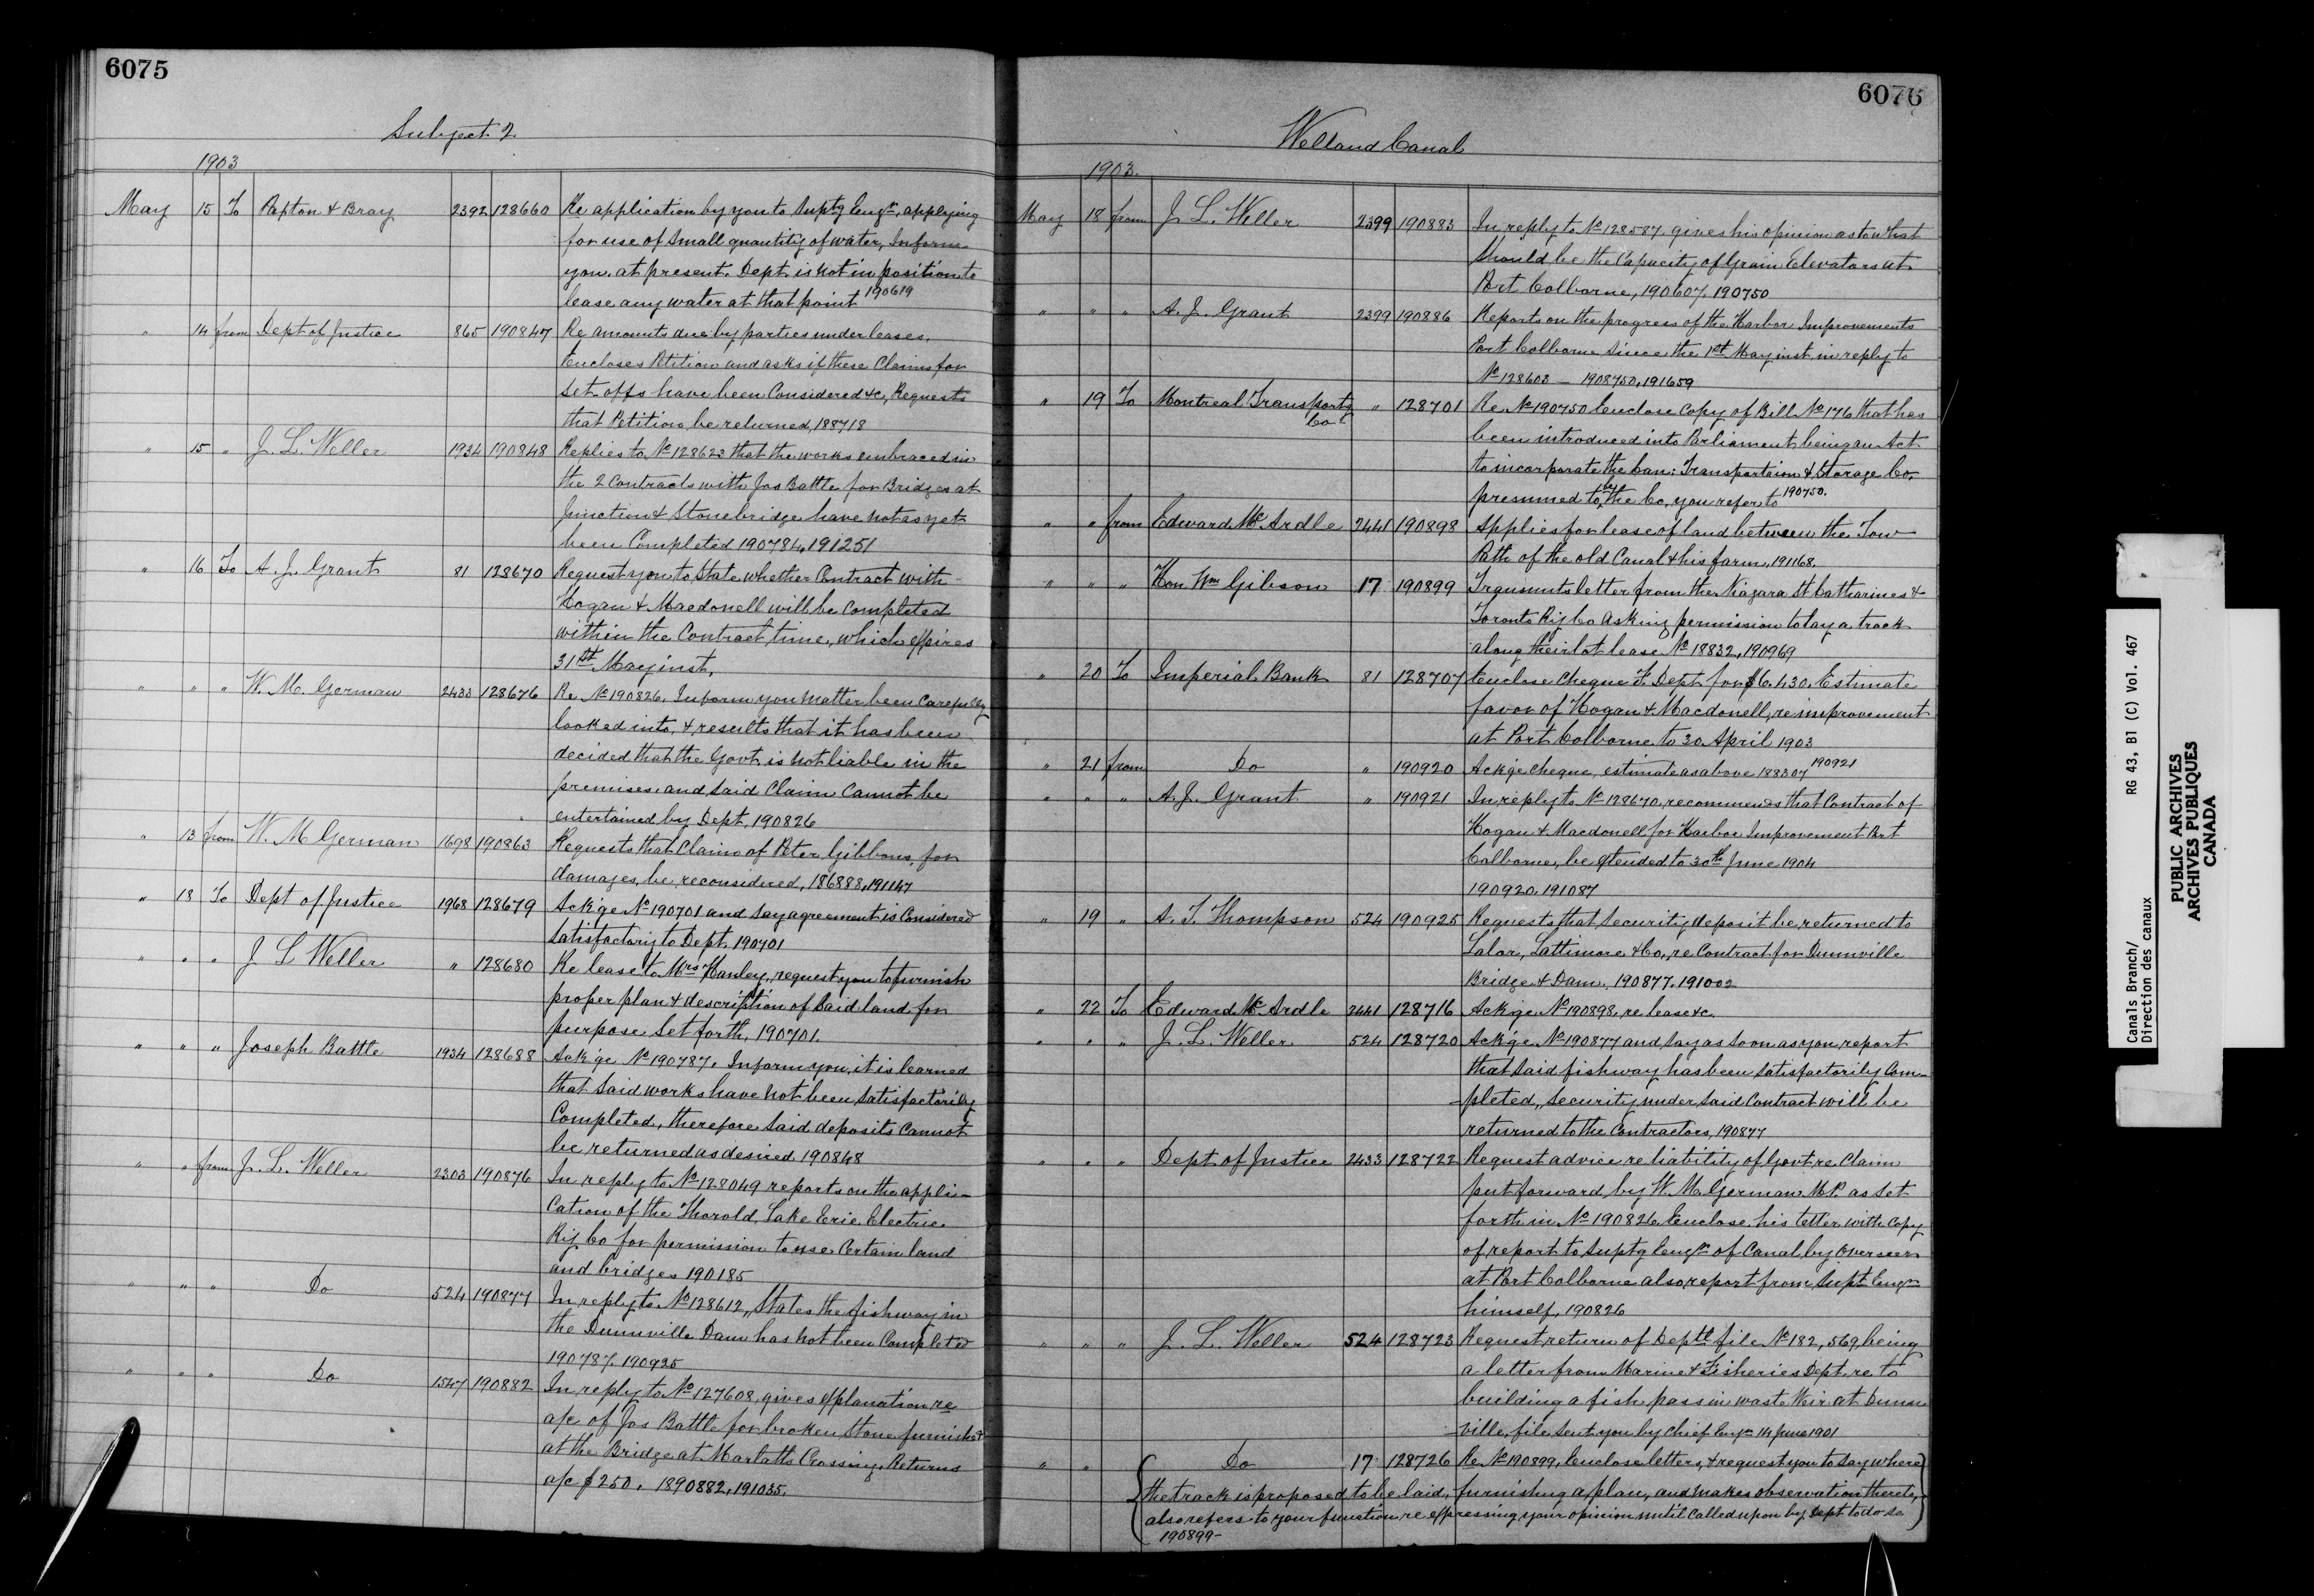 6075
Subject 2
1903
May 15 To Papton & Bray 2392 128660 Re application by you to Suptg Engr, applying
for use of small quantity of water, Inform
you at present Dept is not in position to
lease any water at that point 190619
" 14 from Dept of Justice 865 190847 Re amounts due by parties under leases,
Encloses Petition and asks if these Claims for
set offs have been Considered &c, Requests
that Petition be returned, 188718
" 15 " J. L. Weller 1934 190848 Replies to No 128623 that the works embraced in
the 2 Contracts with Jos Battle for Bridges at
Junction & Stonebridge have not as yet
been Completed 190784, 191251
" 16 To A. J. Grant 81 128670 Request you to State whether Contract with
Hogan & Macdonell will be Completed
within the Contract time, which expires
31st May inst,
" " " W. M. German 2433 128676 Re No 190826, Inform you matter been Carefully
looked into, & results that it has been
decided that the Govt is not liable in the
premises and said Claim Cannot be
entertained by Dept, 190826
" 13 from W. M German 1698 190863 Requests that Claim of Peter Gibbons, for
damages, be reconsidered, 186888, 191147
" 18 To Dept of Justice 1968 128679 Ackge No 190701 and say agreement is Considered
satisfactory to Dept, 190701
" " " J L Weller " 128680 Re lease to Mrs Hanley, request you to furnish
proper plan & description of said land for
purpose set forth, 190701.
" " " Joseph Battle 1934 128688 Ackge No 190787, Inform you, it is learned
that said works have not been satisfactorily
Completed, therefore said deposits Cannot
be returned as desired 190848
" " from J. L. Weller 2303 190876 In reply to No 128049 reports on the appli-
cation of the Thorold, Lake Erie Electric
Ry Co for permission to use Certain land
and bridges 190185
" " " Do 524 190877 In reply to No 128612, States the fishway in
the Dunnville Dam has not been Completed
190787, 190925
" " " Do 1547 190882 In reply to No 127608, gives explanation re
a/c of Jos Battle for broken stone furnished
at the Bridge at Marlatts Crossing, Returns
a/c $250. 1890882, 191035.
6076
Welland Canal
1903.
May 18 from J. L. Weller 2399 190883 In reply to No 128587, gives his opinion as to what
should be the Capacity of Grain Elevators at
Port Colborne, 190607, 190750
" " " A. J. Grant 2399 190886 Reports on the progress of the Harbor Improvements
Port Colborne since the 1st May inst in reply to
No 128603 — 1908750, 191659
" 19 To Montreal Transportg " 128701 Re No 190750 Enclose Copy of Bill No 176 that has
Co
been introduced into Parliament being an Act
to incorporate the Can: Transportaion & Storage Co.
presumed to be the Co, you refer to 190750.
" " from Edward McArdle 2441 190898 Applies for lease of land between the Tow
Path of the old Canal & his farm, 191168.
" " " Hon Wm Gibson 17 190899 Transmits letter from the Niagara St Catharines &
Toronto Ry Co Asking permission to lay a track
along their lot lease No 18832, 190969
" 20 To Imperial Bank 81 128707 Enclose Cheque F. Dept for $6,430. Estimate
favor of Hogan & Macdonell, re improvement
at Port Colborne to 30 April 1903
" 21 from Do " 190920 Ackge Cheque, estimate as above 188307 190921
" " " A. J. Grant " 190921 In reply to No 128670, recommends that Contract of
Hogan & Macdonell for Harbor Improvement Port
Colborne, be extended to 30th June 1904
190920, 191087
" 19 " A. T. Thompson 524 190925 Requests that security deposit be returned to
Lalor, Lattimore & Co., re Contract for Dunnville
Bridge & Dam, 190877, 191002
" 22 To Edward McArdle 2441 128716 Ackge No 190898, re lease &c.
" " " J. L. Weller 524 128720 Ackge No 190877 and say as soon as you report
that said fishway has been satisfactorily Com-
-pleted, security under said Contract will be
returned to the Contractors, 190877
" " " Dept of Justice 2433 128722 Request advice re liability of Govt re Claim
put forward by W. M. German M.P. as set
forth in No 190826, Enclose his letter with Copy
of report to Suptg Engr of Canal, by Overseer
at Port Colborne also report from Supt Engr
himself, 190826
" " " J. L. Weller 524 128723 Request return of Deptl file No 182,569, being
a letter from Marine & Fisheries Dept, re to
building a fish pass in waste Weir at Dunn
-ville, file sent you by Chief Engr 14 June 1901
" " Do 17 128726 Re No 190899, Enclose letters, & request you to say where
the track is proposed to be laid, furnishing a plan, and makes observation thereto,
also refers to your function re expressing your opinion until Called upon by Dept to do so
190899-
Canals Branch/
Direction des canaux
RG 43, B1 (C) Vol. 467
PUBLIC ARCHIVES
ARCHIVES PUBLIQUES
CANADA